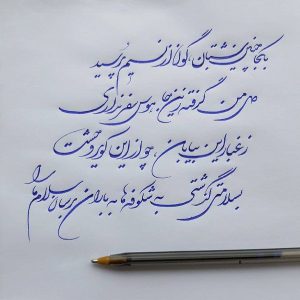 بکجا چنین شتابان، گون از نسیم پرسید
دل من گرفته زین جا، هوس سفر نداری
ز غبار این بیابان، چو از این کویر وحشت
بسلامتی گذشتی به شکوفه ها به باران برسان سلام ما را